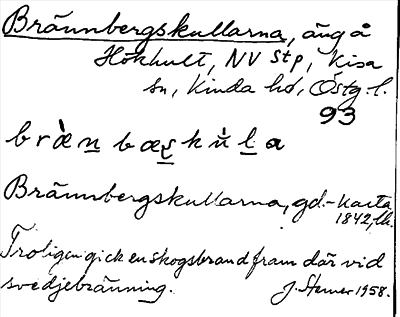 Brännbergskullarna, äng å
Hökhult, NV Stp, Kisa
sn, Kinda hd, Östg. l.
93
bræ̀n bæʂkúl̠a
Brännbergskullarna, gd.-karta
1842, lk.
Troligen gick en skogsbrand fram där vid
svedjebränning. J. Sterner 1958.